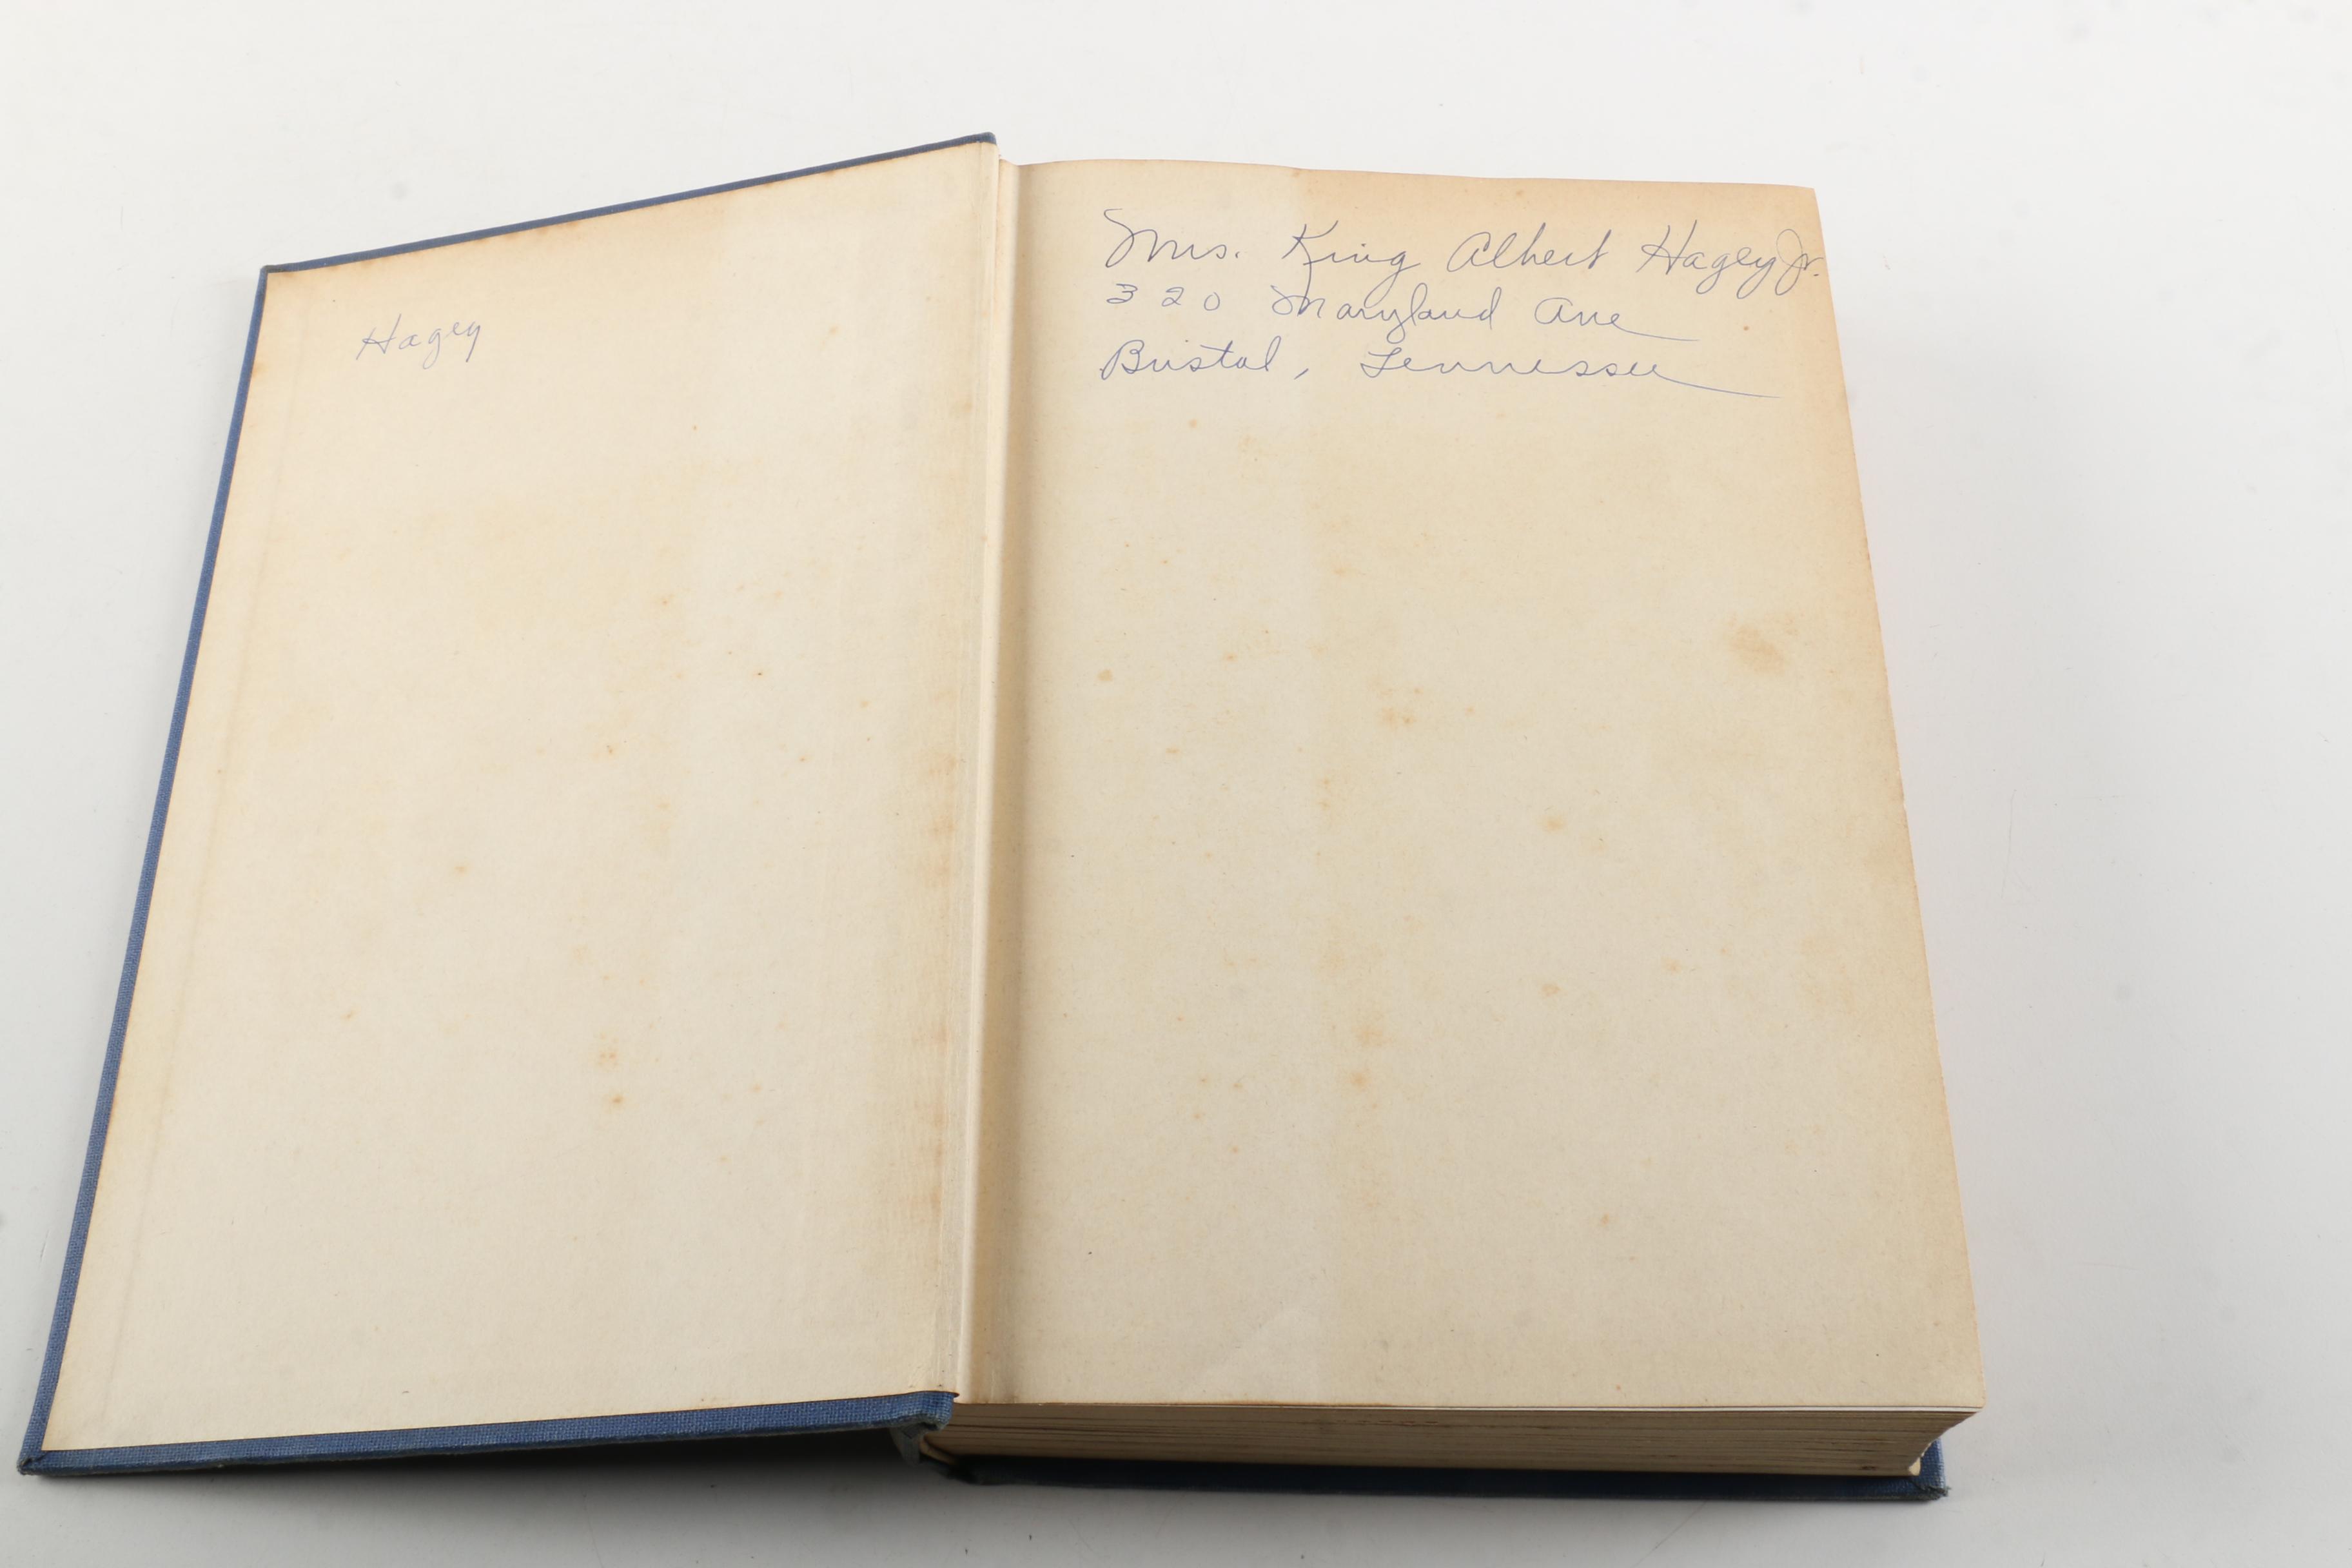 Hagey
Mrs. King Albert Hagey Jr.
320 Maryland Ave
Bristol, Tennessee